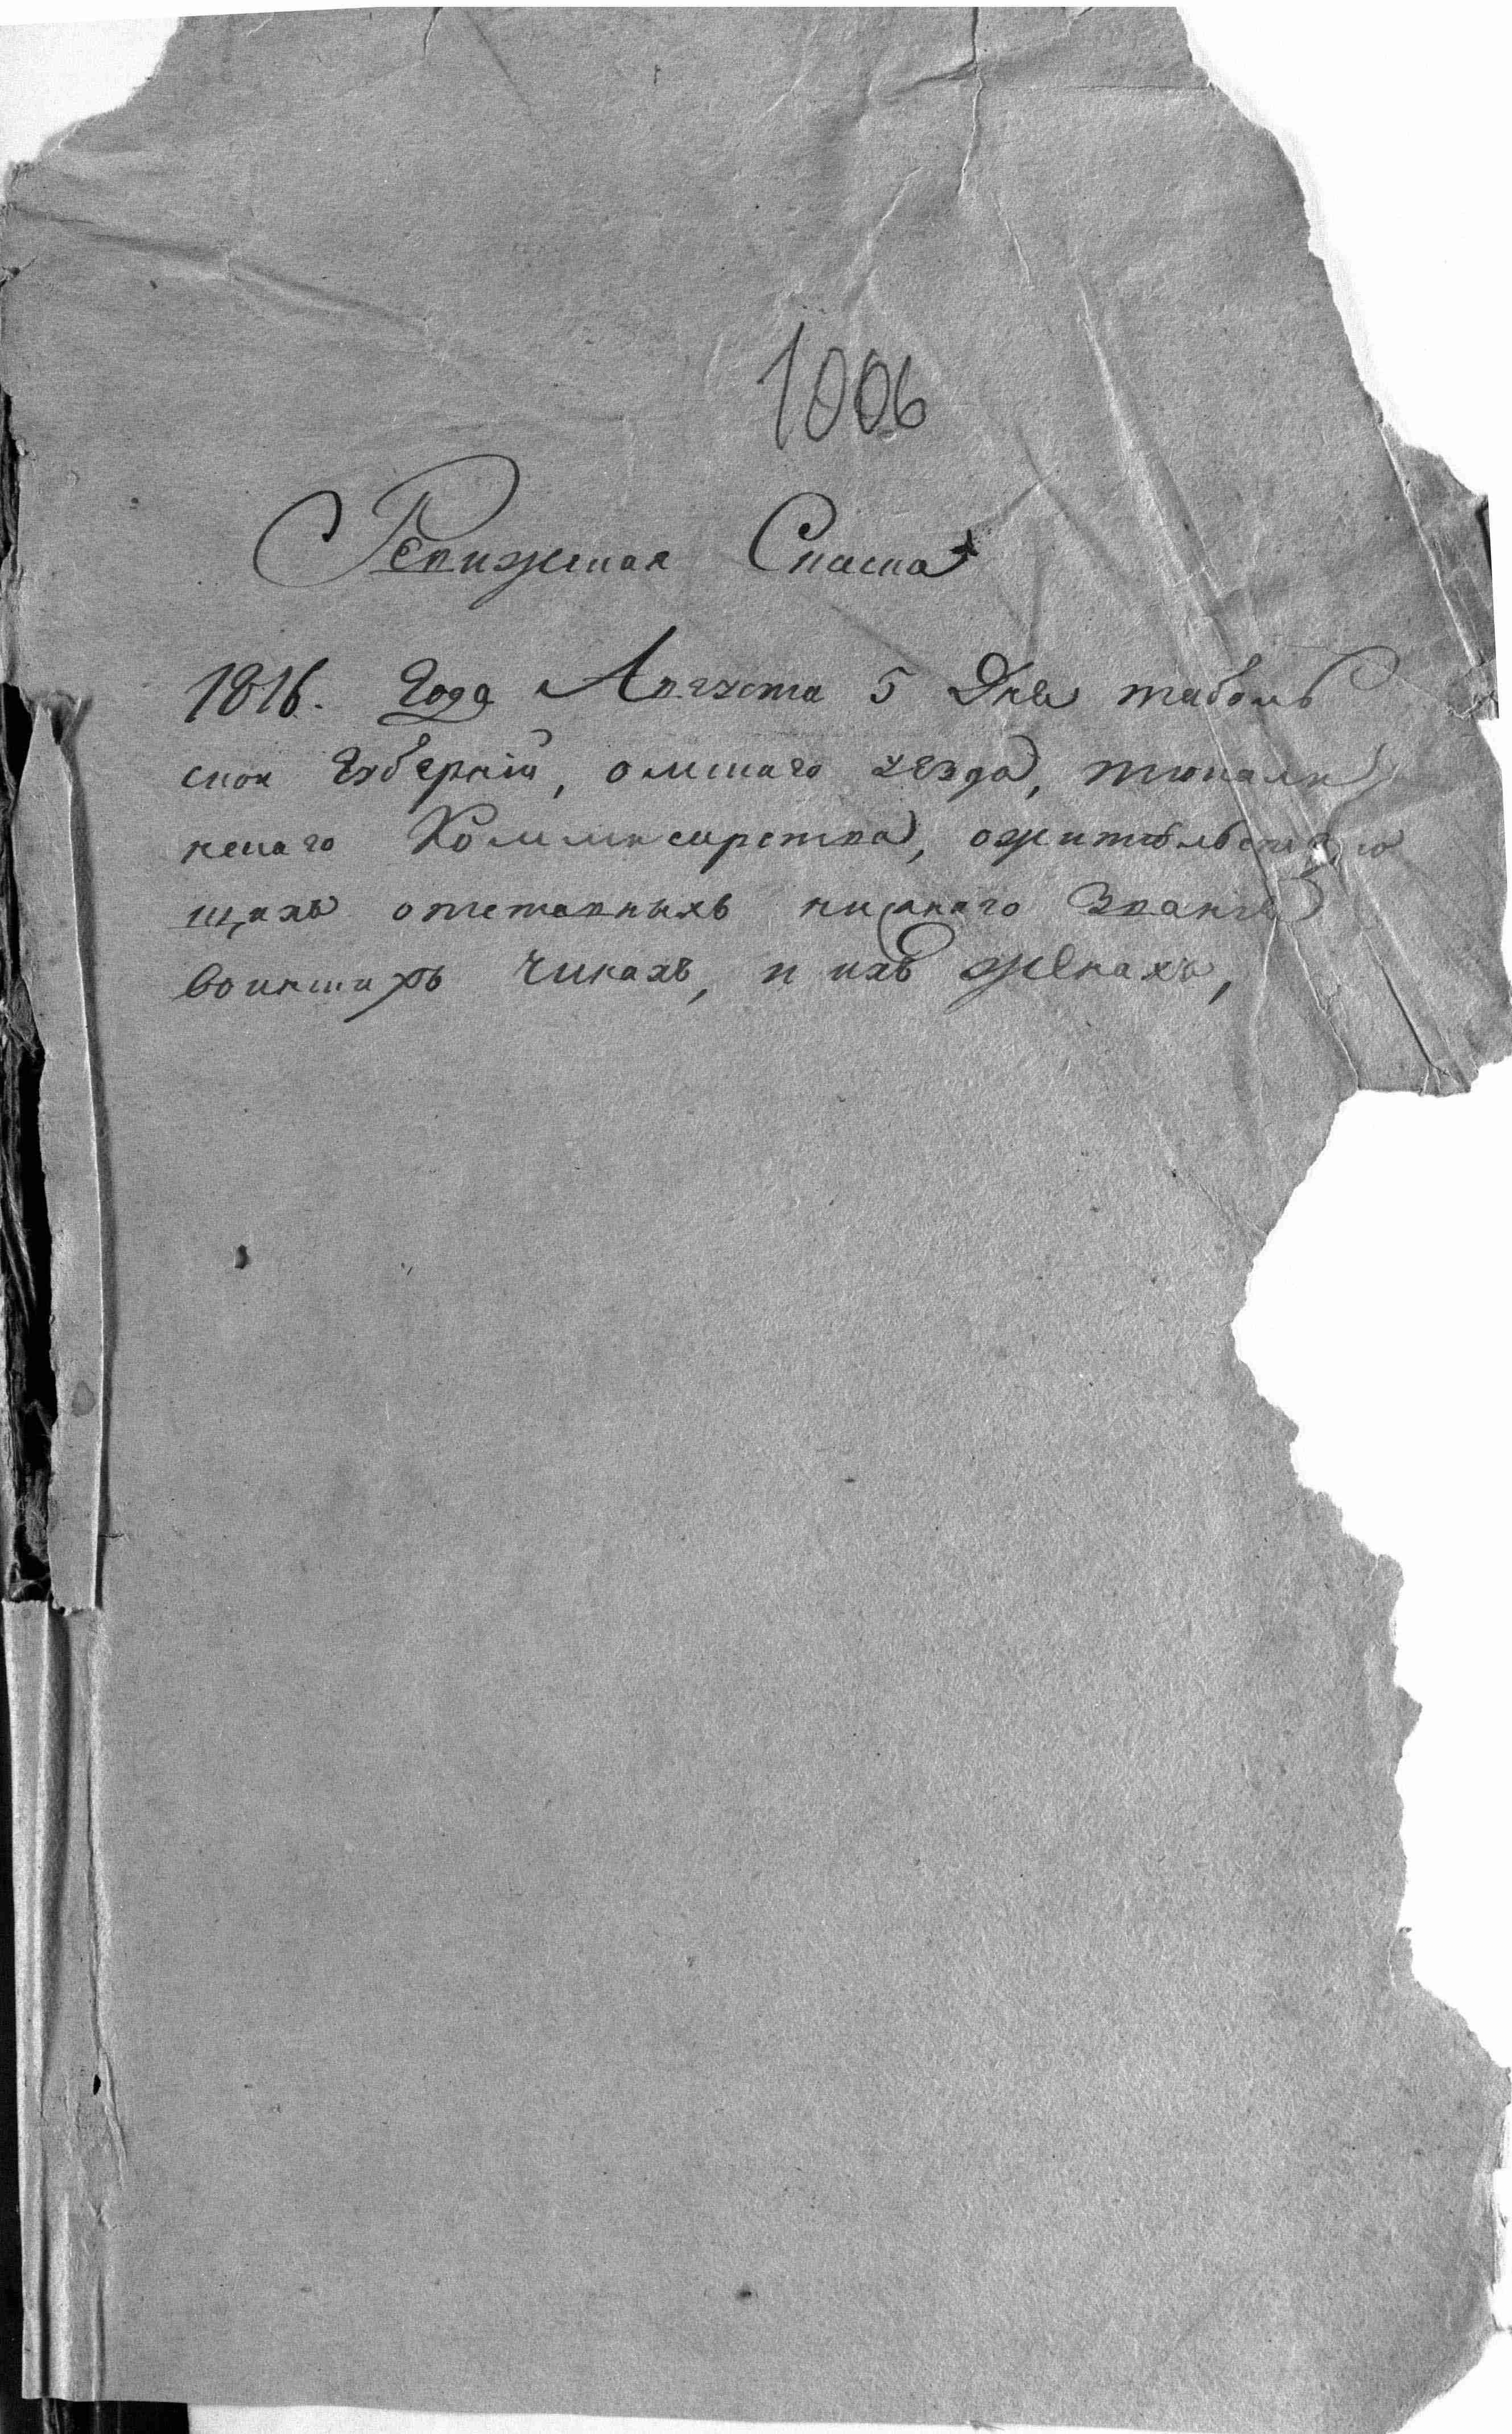 1006
Ревижская Скаска
1816. Года Августа 5 Дня таболь
ской Губернiй, омскаго уезда, тюкали
нскаго Коммисарства, ожительствую
щихъ отставныхъ нижняго Званiя
воинскихъ Чинахъ, и ихъ жЕнахъ,